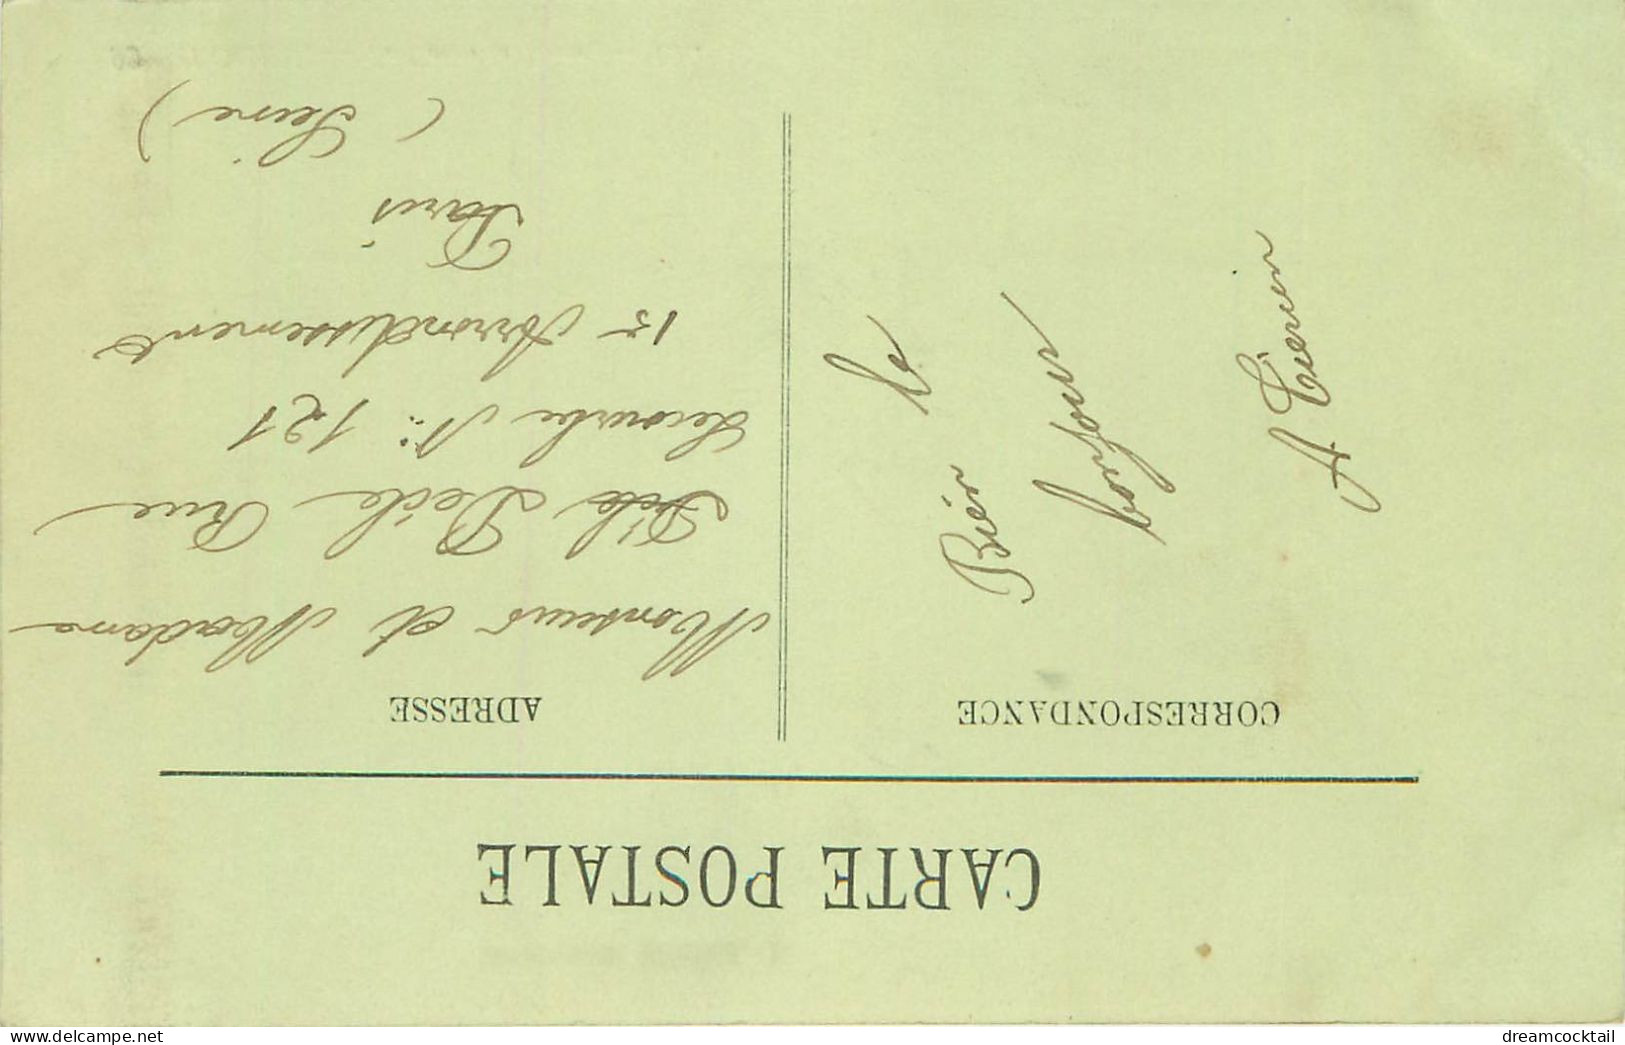 CARTE POSTALE
CORRESPONDANCE
Bien le
bonjour
A.
ADRESSE
Monsieur et Madame
Rue
Lecourbe N: 121
15 Arrondissement
Paris
(Seine)
delcampe.net
dreamcocktail